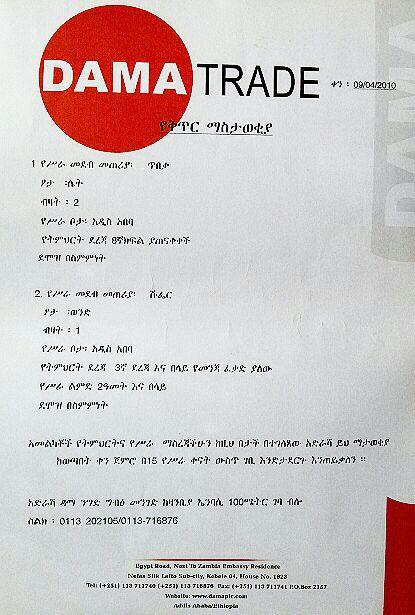 DAMA TRADE
ቀን ፡ 09/04/2010
የቅጥር ማስታወቂያ
1 የሥራ መደብ መጠሪያ፡ ጥበቃ
ፆታ ፡ሴት
ብዛት ፡ 2
የሥራ ቦታ፡ አዲስ አበባ
የትምህርት ደረጃ 8ኛክፍል ያጠናቀቀች
ደሞዝ በስምምነት
2. የሥራ መደብ መጠሪያ፡ ሹፌር
ፆታ ፡ወንድ
ብዛት ፡ 1
የሥራ ቦታ፡ አዲስ አበባ
የትምህርት ደረጃ 3ኛ ደረጃ እና በላይ የመንጃ ፈቃድ ያለው
የሥራ ልምድ 2ዓመት እና በላይ
ደሞዝ በስምምነት
አመልካቾች የትምህርትና የሥራ ማስረጃችሁን ከዚህ በታች በተገለጸው አድራሻ ይህ ማታወቂያ
ከወጣበት ቀን ጀምሮ በ15 የሥራ ቀናት ውስጥ ገቢ እንድታደርጉ እንጠይቃለን ፡፡
አድራሻ ዳማ ንግድ ግብፅ መንገድ ከዛንቢያ ኤንባሲ 100ሜትር ገባ ብሎ
ስልክ ፡ 0113 202105/0113-716876
Egypt Road, Next To Zambia Embassy Residence
Nefas Silk Lafto Sub-city, Kebele 04, House No. 1823
Tel: (+251) 113 713740 (+251) 113 716876 Fax: (+251) 113 713741 P.O.Box 2357
Website: www.damaplc.com
Addis Ababa/Ethiopia
DAMA